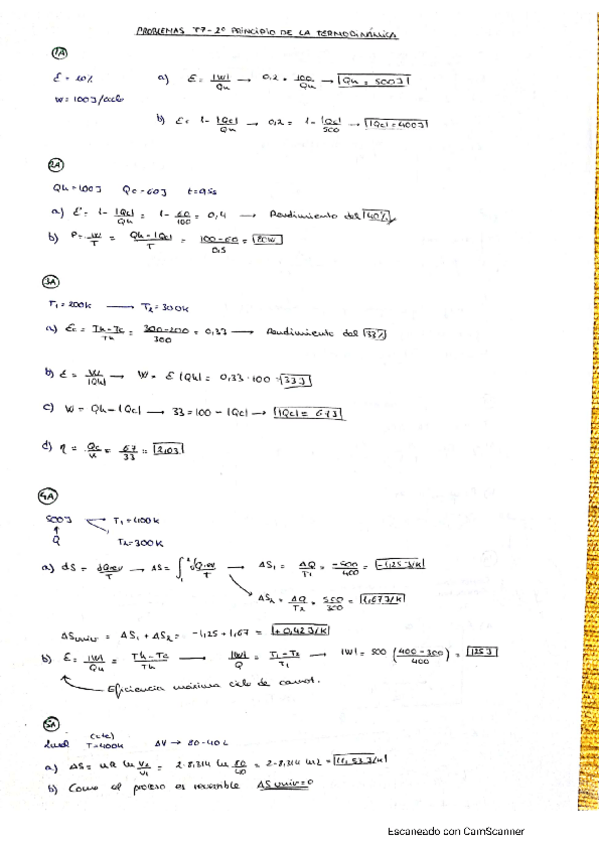 PROBLEMAS T7-2º PRINCIPIO DE LA TERMODINÁMICA
1A
ε = 20% a) ε = |W|/Qh → 0,2 = 100/Qh → Qh = 500J
W = 100J/ciclo
b) ε = 1 - |Qc|/Qh → 0,2 = 1 - |Qc|/500 → |Qc| = 400J
2A
Qh = 100J Qc = 60J t = 0,5s
a) ε = 1 - |Qc|/Qh = 1 - 60/100 = 0,4 → Rendimiento del 40%
b) P = W/T = Qh - |Qc|/T = 100-60/0,5 = 80W
3A
T1 = 200K → T2 = 300K
a) εc = Th-Tc/Th = 300-200/300 = 0,33 → Rendimiento del 33%
b) ε = W/|Qh| → W = ε |Qh| = 0,33 · 100 = 33J
c) W = Qh - |Qc| → 33 = 100 - |Qc| → |Qc| = 67J
d) η = Qc/W = 67/33 = 2,03
4A
500J T1 = 400K
Q T2 = 300K
a) dS = dQrev/T → ΔS = ∫₁² dQrev/T → ΔS1 = ΔQ/T1 = -500/400 = -1,25J/K
ΔS2 = ΔQ/T2 = 500/300 = 1,67J/K
ΔSuniv = ΔS1 + ΔS2 = -1,25 + 1,67 = +0,42J/K
b) ε = |W|/Qh = Th-Tc/Th → |W|/Q = T1-T2/T1 → |W| = 500 (400-300/400) = 125J
Eficiencia máxima ciclo de carnot.
5A
2mol (cte) T=400K ΔV → 80-40L
a) ΔS = nR ln V2/V1 = 2·8,314 ln 80/40 = 2·8,314 ln2 = 11,53J/K
b) Como el proceso es reversible ΔSuniv=0
Escaneado con CamScanner